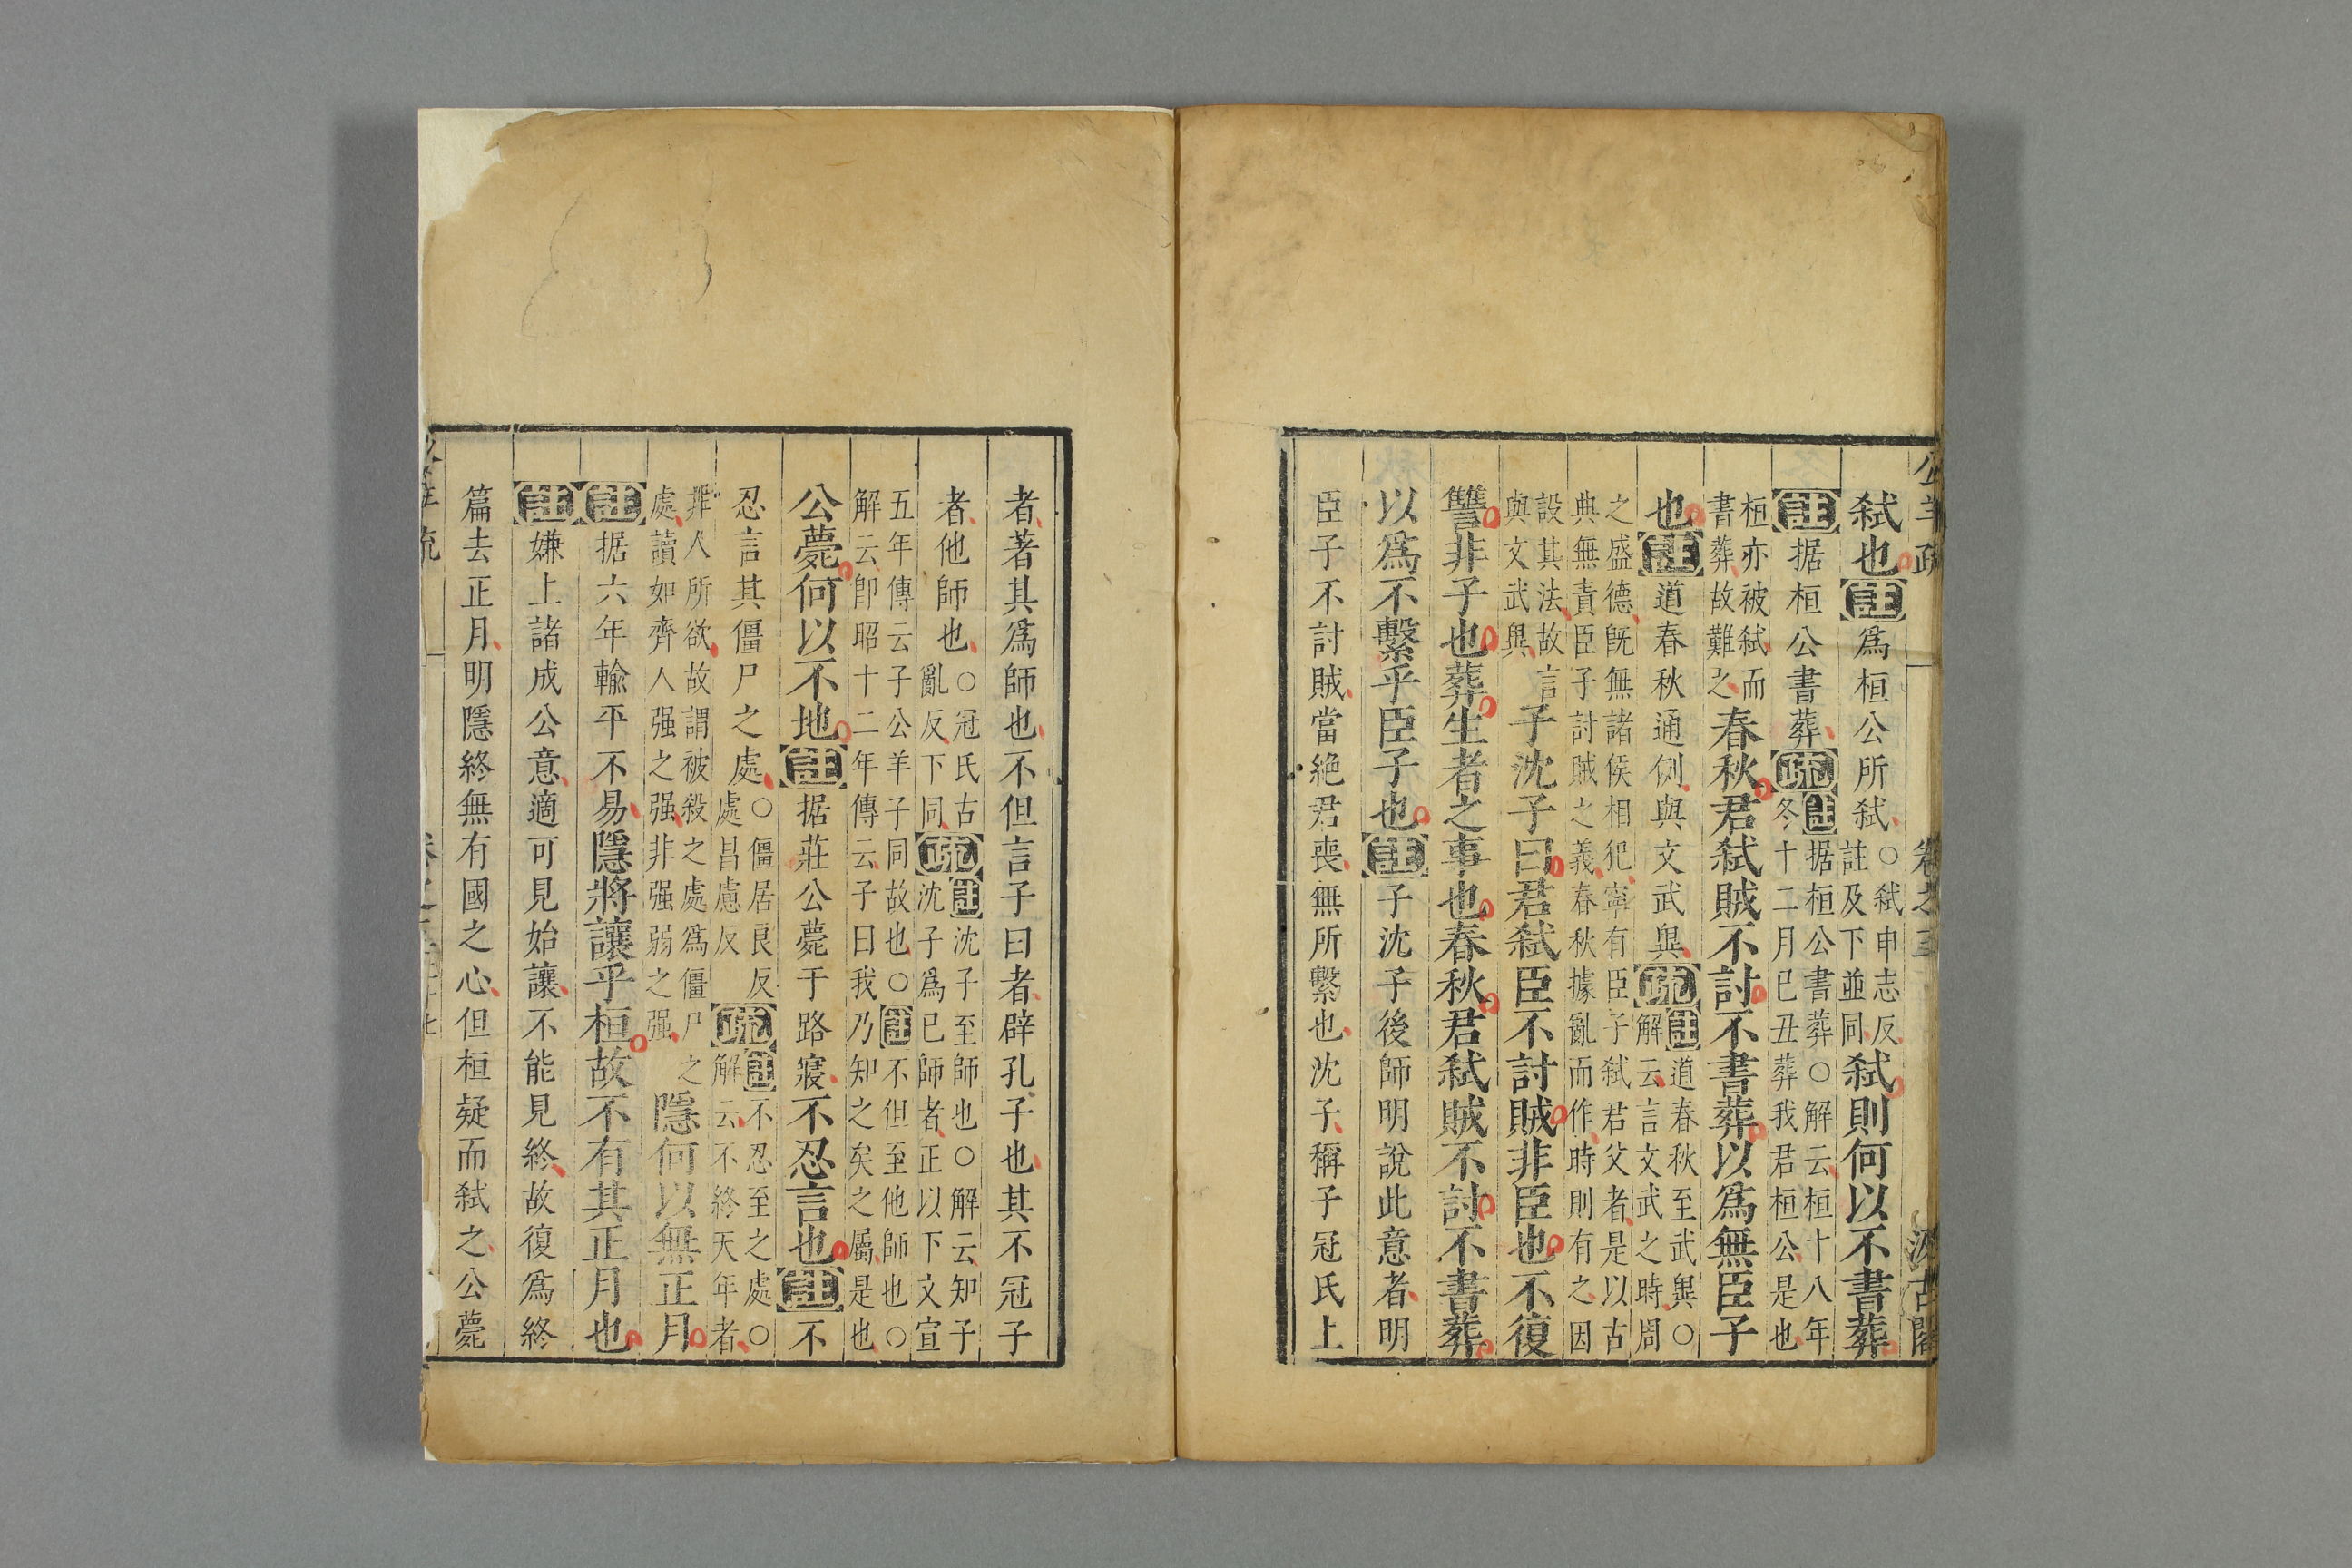 公羊疏 卷之三 汲古閣
弑也註爲桓公所弑○弑申志反註及下並同弑則何以不書葬
註据桓公書葬疏註据桓公書葬○解云桓十八年冬十二月已丑葬我君桓公是也
桓亦被弑而書葬故難之春秋君弑賊不討不書葬以爲無臣子
也註道春秋通例與文武異疏註道春秋至武異○解云言文武之時周
之盛德旣無諸侯相犯寧有臣子弑君父者是以古典無責臣子討賊之義春秋據亂而作時則有之因
設其法故言與文武異子沈子曰君弑臣不討賊非臣也不復
讐非子也葬生者之事也春秋君弑賊不討不書葬
以爲不繫乎臣子也註子沈子後師明說此意者明
臣子不討賊當絶君喪無所繫也沈子稱子冠氏上
者著其爲師也不但言子曰者辟孔子也其不冠子
者他師也○冠氏古亂反下同疏註沈子至師也○解云知子沈子爲已師者正以下文宣
五年傳云子公羊子同故也○註不但至他師也○解云卽昭十二年傳云子曰我乃知之矣之屬是也
公薨何以不地註据莊公薨于路寢不忍言也註不
忍言其僵尸之處○僵居良反處昌慮反疏註不忍至之處○解云不終天年者
非人所欲故謂被殺之處爲僵尸之處讀如齊人强之强非强弱之强隱何以無正月
註据六年輸平不易隱將讓乎桓故不有其正月也
註嫌上諸成公意適可見始讓不能見終故復爲終
篇去正月明隱終無有國之心但桓疑而弑之公薨